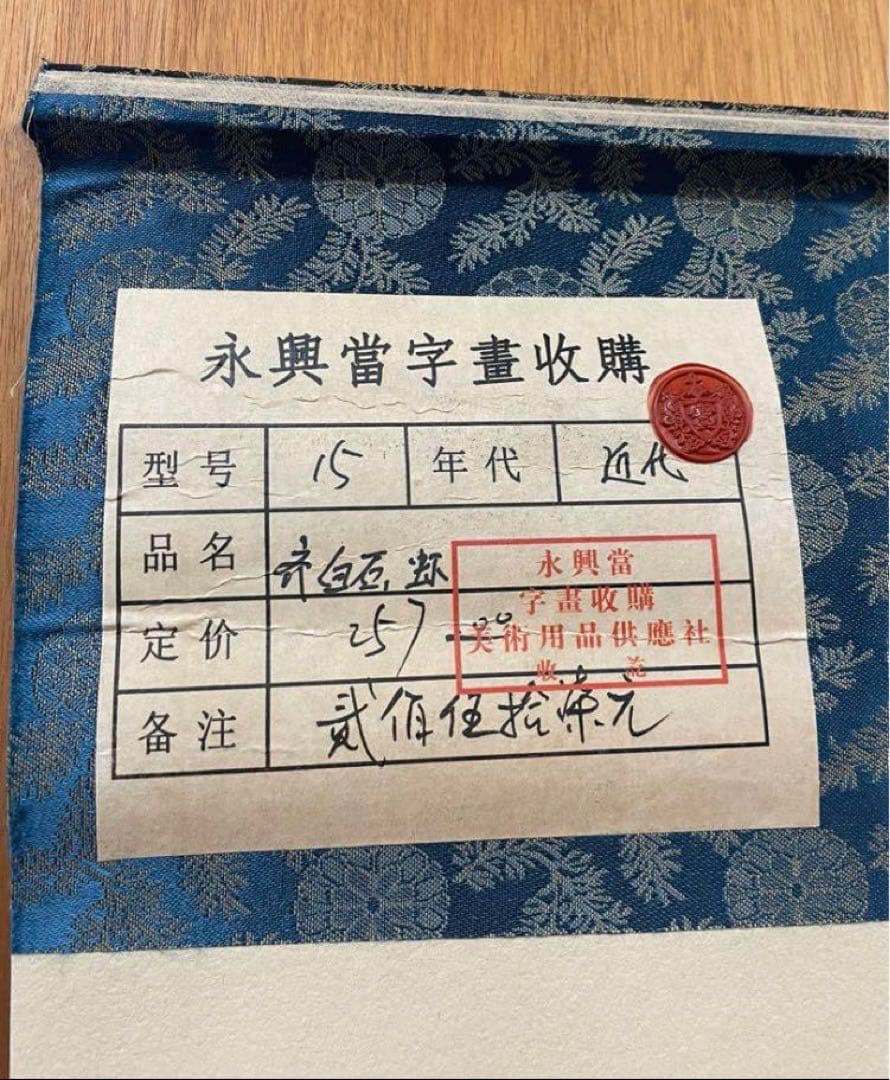 永興當字畫收購
型号 15 年代 近代
品名 齐白石
定价 257.00
备注 貳佰伍拾柒元
永興當
字畫收購
美術用品供應社
收